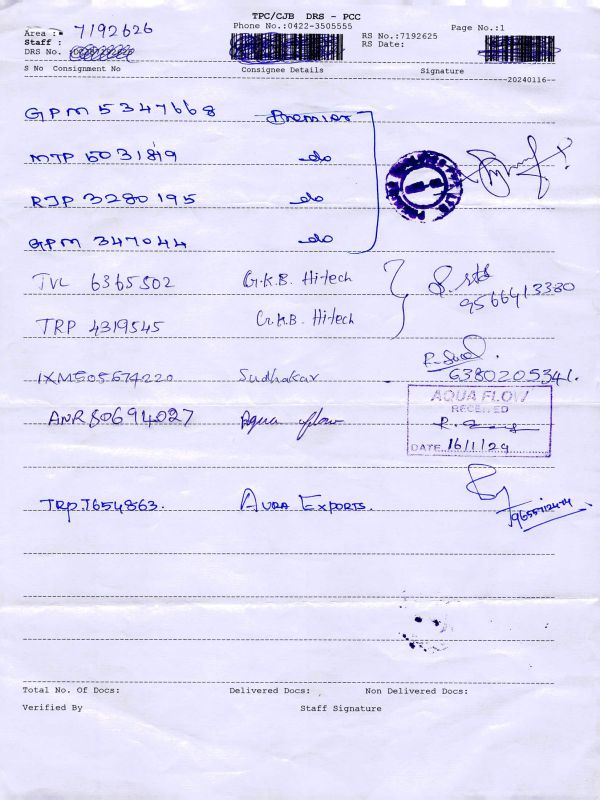 TPC/CJB DRS - PCC
Phone No.:0422-3505555
Page No.:1
Area : 7192626
Staff :
DRS No.
RS No.:7192625
RS Date:
S No Consignment No Consignee Details Signature
20240116
GPM 5347668 Premier
MTP 5031819 do
RJP 3280195 do
GPM 347044 do
TVL 6365502 G.K.B. Hi-tech
9566413380
TRP 4319545 G.K.B. Hi-tech
IXM505674220 Sudhakar 6380205341.
ANR80694027 Aqua flow
AQUA FLOW
RECEIVED
DATE 16/1/24
TRP.7654863. AURA EXPORTS.
Total No. Of Docs: Delivered Docs: Non Delivered Docs:
Verified By Staff Signature